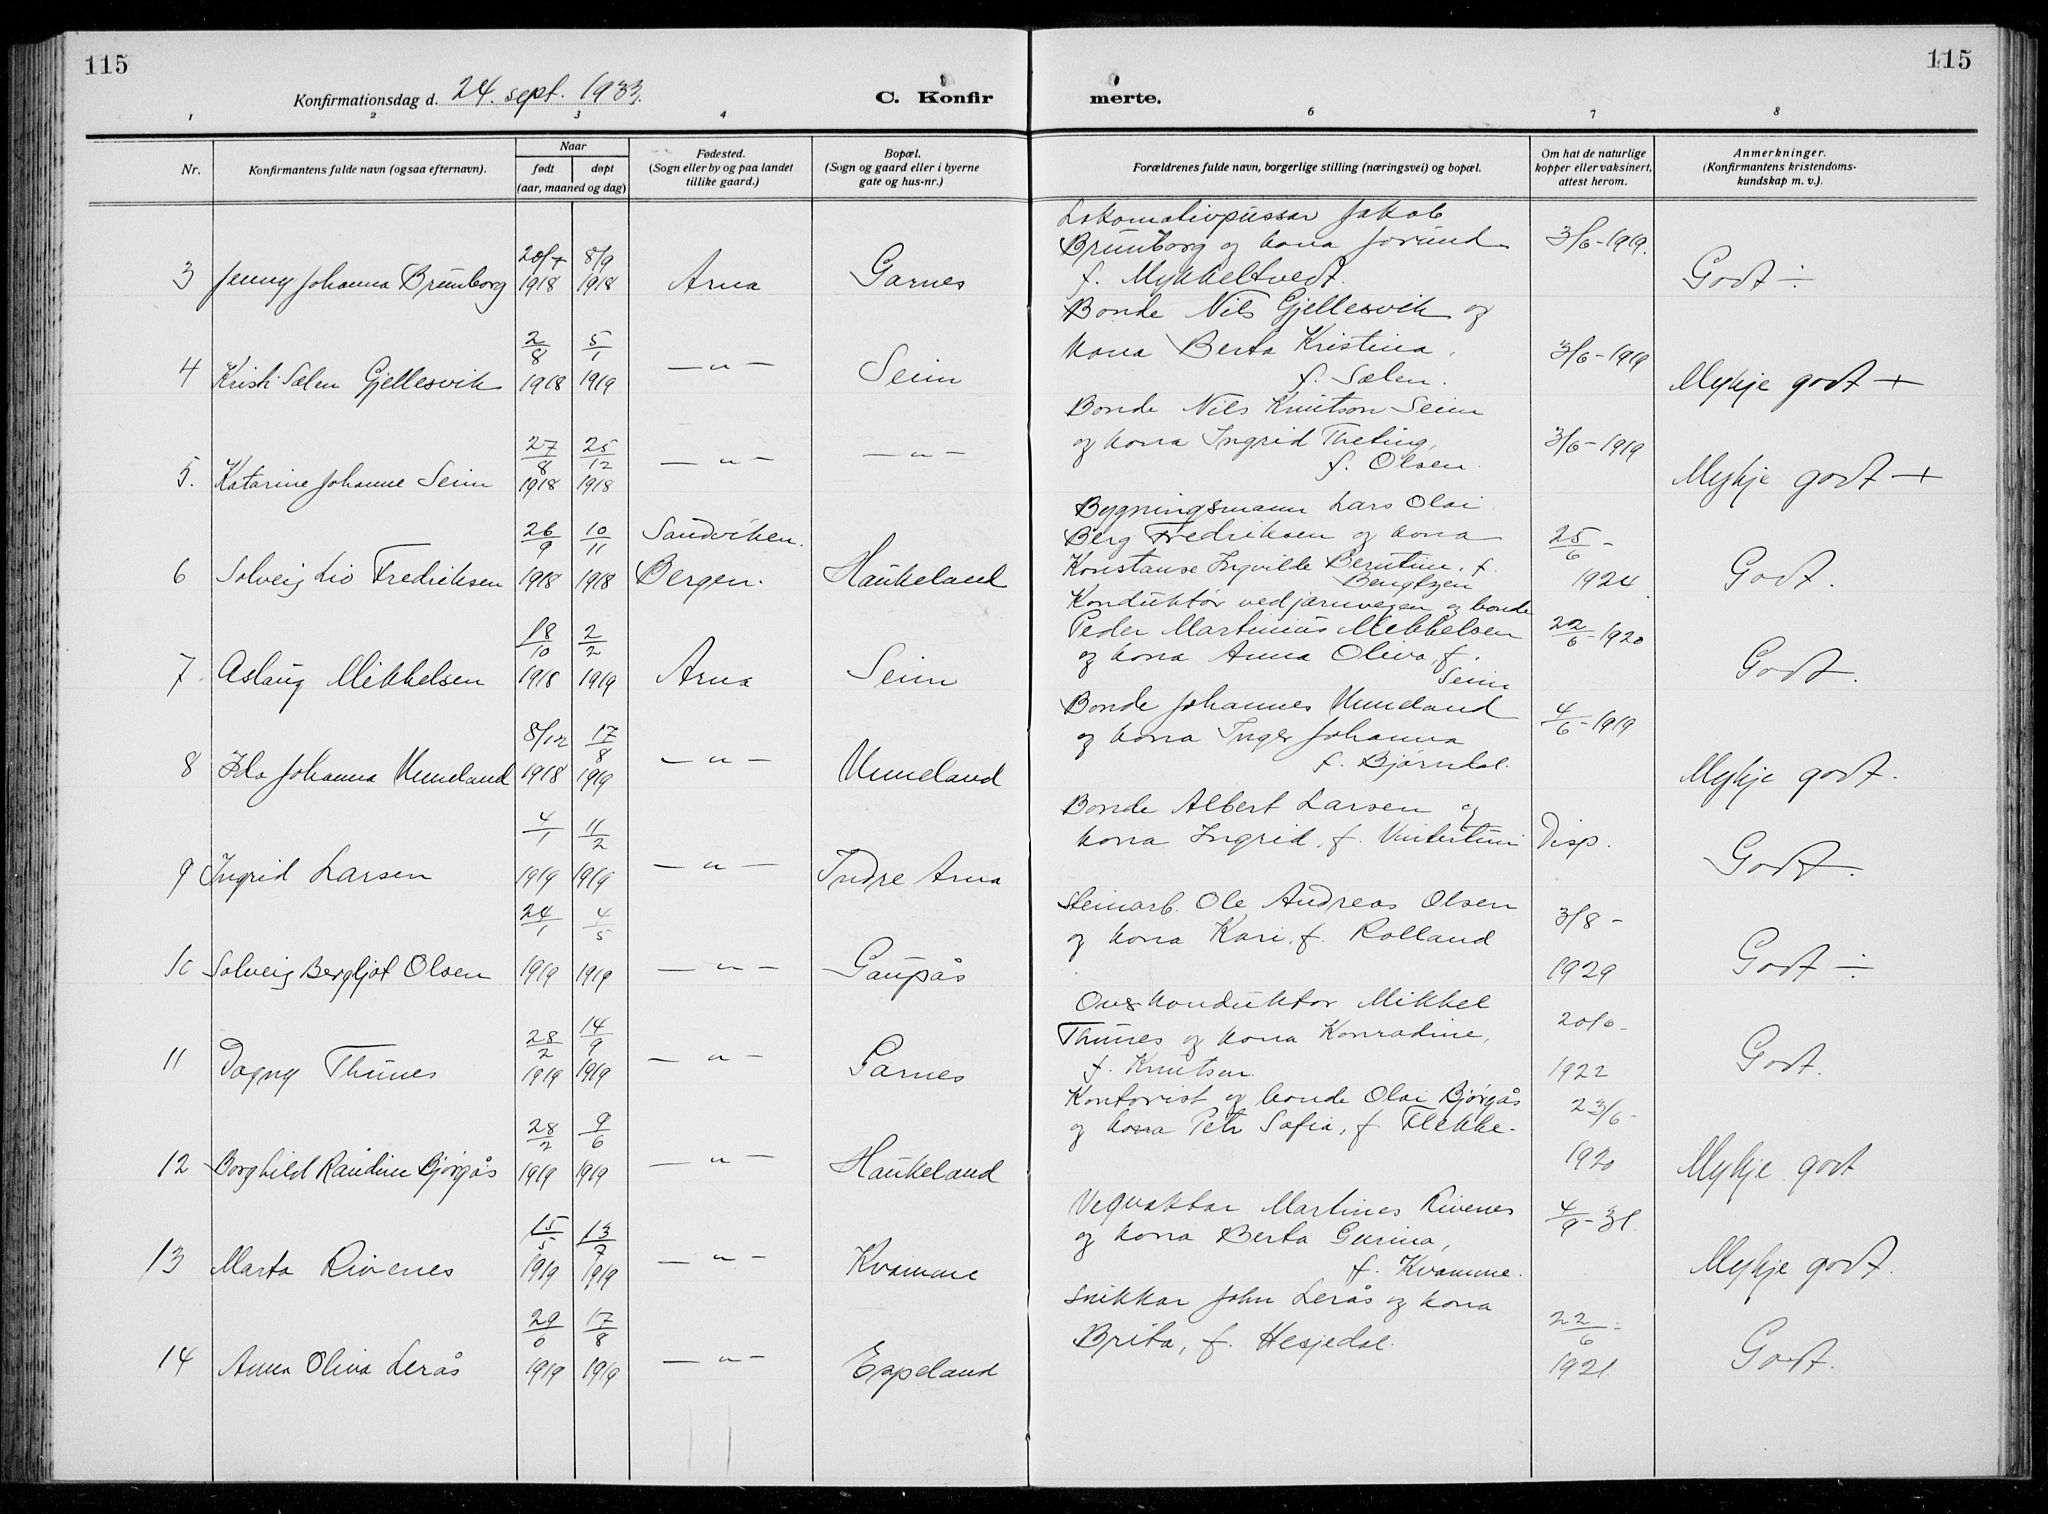 115
115
Konfirmationsdag d. 24. sept. 1933.
C. Konfir
merte.
1 2 3 4 6 7 8
Nr.
Konfirmantens fulde navn (ogsaa efternavn).
Naar
født
døpt
(aar, maaned og dag)
Fødested.
(Sogn eller by og paa landet
tillike gaard.)
Bopæl.
(Sogn og gaard eller i byerne
gate og hus-nr.)
Forældrenes fulde navn, borgerlige stilling (næringsvei) og bopæl.
Om hat de naturlige
kopper eller vaksinert,
attest herom.
Anmerkninger.
(Konfirmantens kristendoms-
kundskap m. v.).
Lokomotivpussar Jakob
Brunborg og kona Jorund
f. Mykkeltvedt.
3 Jenny Johanna Brunborg 20/7 1918 8/9 1918 Arna Garnes 3/6-1919. Godt ÷
Bonde Nils Gjellesvik og
kona Berta Kristina,
f. Sælen.
4 Krist. Sælen Gjellesvik 2/8 1918 5/1 1919 — " — Seim 3/6-1919 Mykje godt +
Bonde Nils Knutson Seim
og kona Ingrid
f. Olsen.
5. Katarine Johanne Seim 27/8 1918 25/12 1918 — " — — " — 3/6-1919 Mykje godt +
Bygningsmann Lars Olai
Berg Fredriksen og kona
Konstanse Ingvilde Berntine, f.
Bengtzen
6 Solveig Liv Fredriksen 26/9 1918 10/11 1918 Sandviken. Bergen. Haukeland 25/6 - 1924. Godt.
Konduktør ved jarnvegen og bonde
Peder Martinius Mikkelsen
og kona Anna Oliva, f.
Seim
7. Aslaug Mikkelsen 18/10 1918 2/2 1919 Arna Seim 22/6-1920 Godt.
Bonde Johannes Unneland
og kona Inger Johanna
f. Bjørndal.
8 Ida Johanna Unneland 8/12 1918 17/8 1919 — " — Unneland 4/6-1919 Mykje godt.
Bonde Albert Larsen og
kona Ingrid, f. Vintertun
9 Ingrid Larsen 4/1 1919 11/2 1919 — " — Indre Arna Disp. Godt.
Steinarb. Ole Andreas Olsen
og kona Kari, f. Rolland
10 Solveig Bergljot Olsen 24/1 1919 4/5 1919 — " — Gaupås 3/8 - 1929 Godt ÷
Overkonduktør Mikkel
Thunes og kona Konradine,
f. Knutsen
11 Dagny Thunes 28/2 1919 14/9 1919 — " — Garnes 20/6 - 1922 Godt.
Kontorist og bonde Olai Bjørgås
og kona Petr. Sofia, f. Flekke.
12 Borghild Raudine Bjørgås 28/2 1919 9/6 1919 — " — Haukeland 23/6 - 1920 Mykje godt
Vegvaktar Martines Rivenes
og kona Berta Gurina,
f. Kvamme.
13 Marta Rivenes 15/5 1919 13/7 1919 — " — Kvamme 4/9-31. Mykje godt.
Snikkar John Lerås og kona
Brita, f. Hesjedal.
14 Anna Oliva Lerås 29/6 1919 17/8 1919 — " — Espeland 22/6 - 1921. Godt.